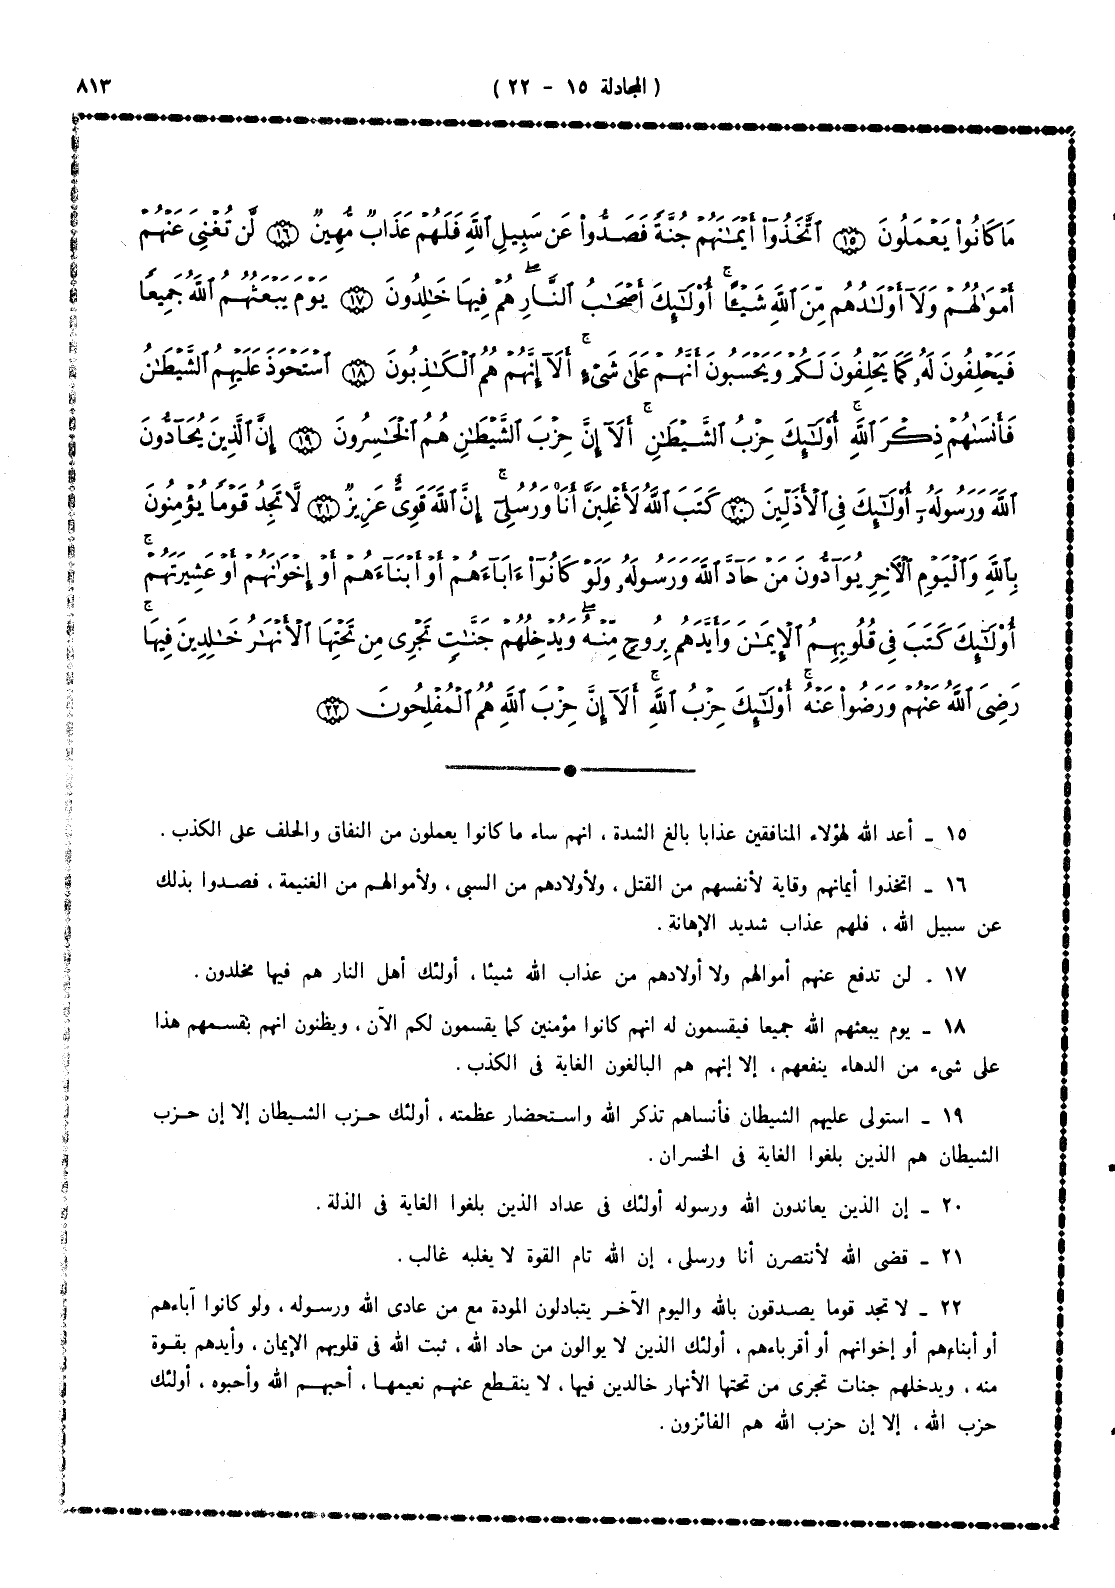 ( المجادلة ١٥ - ٢٢ ) ٨١٣
مَا كَانُوا۟ يَعۡمَلُونَ ١٥ ٱتَّخَذُوٓا۟ أَيۡمَـٰنَهُمۡ جُنَّةً فَصَدُّوا۟ عَن سَبِيلِ ٱللَّهِ فَلَهُمۡ عَذَابٌ مُّهِينٌ ١٦ لَّن تُغۡنِىَ عَنۡهُمۡ
أَمۡوَٰلُهُمۡ وَلَآ أَوۡلَـٰدُهُم مِّنَ ٱللَّهِ شَيۡـًٔا ۚ أُو۟لَـٰٓئِكَ أَصۡحَـٰبُ ٱلنَّارِ ۖ هُمۡ فِيهَا خَـٰلِدُونَ ١٧ يَوۡمَ يَبۡعَثُهُمُ ٱللَّهُ جَمِيعًا
فَيَحۡلِفُونَ لَهُۥ كَمَا يَحۡلِفُونَ لَكُمۡ وَيَحۡسَبُونَ أَنَّهُمۡ عَلَىٰ شَىۡءٍ ۚ أَلَآ إِنَّهُمۡ هُمُ ٱلۡكَـٰذِبُونَ ١٨ ٱسۡتَحۡوَذَ عَلَيۡهِمُ ٱلشَّيۡطَـٰنُ
فَأَنسَىٰهُمۡ ذِكۡرَ ٱللَّهِ ۚ أُو۟لَـٰٓئِكَ حِزۡبُ ٱلشَّيۡطَـٰنِ ۚ أَلَآ إِنَّ حِزۡبَ ٱلشَّيۡطَـٰنِ هُمُ ٱلۡخَـٰسِرُونَ ١٩ إِنَّ ٱلَّذِينَ يُحَآدُّونَ
ٱللَّهَ وَرَسُولَهُۥٓ أُو۟لَـٰٓئِكَ فِى ٱلۡأَذَلِّينَ ٢٠ كَتَبَ ٱللَّهُ لَأَغۡلِبَنَّ أَنَا۠ وَرُسُلِىٓ ۚ إِنَّ ٱللَّهَ قَوِىٌّ عَزِيزٌ ٢١ لَّا تَجِدُ قَوۡمًا يُؤۡمِنُونَ
بِٱللَّهِ وَٱلۡيَوۡمِ ٱلۡـَٔاخِرِ يُوَآدُّونَ مَنۡ حَآدَّ ٱللَّهَ وَرَسُولَهُۥ وَلَوۡ كَانُوٓا۟ ءَابَآءَهُمۡ أَوۡ أَبۡنَآءَهُمۡ أَوۡ إِخۡوَٰنَهُمۡ أَوۡ عَشِيرَتَهُمۡ ۚ
أُو۟لَـٰٓئِكَ كَتَبَ فِى قُلُوبِهِمُ ٱلۡإِيمَـٰنَ وَأَيَّدَهُم بِرُوحٍ مِّنۡهُ ۖ وَيُدۡخِلُهُمۡ جَنَّـٰتٍ تَجۡرِى مِن تَحۡتِهَا ٱلۡأَنۡهَـٰرُ خَـٰلِدِينَ فِيهَا ۚ
رَضِىَ ٱللَّهُ عَنۡهُمۡ وَرَضُوا۟ عَنۡهُ ۚ أُو۟لَـٰٓئِكَ حِزۡبُ ٱللَّهِ ۚ أَلَآ إِنَّ حِزۡبَ ٱللَّهِ هُمُ ٱلۡمُفۡلِحُونَ ٢٢
١٥ - أعد الله لهؤلاء المنافقين عذابا بالغ الشدة ، انهم ساء ما كانوا يعملون من النفاق والحلف على الكذب .
١٦ - اتخذوا أيمانهم وقاية لأنفسهم من القتل ، ولأولادهم من السبى ، ولأموالهم من الغنيمة ، فصدوا بذلك
عن سبيل الله ، فلهم عذاب شديد الإهانة .
١٧ - لن تدفع عنهم أموالهم ولا أولادهم من عذاب الله شيئا ، أولئك أهل النار هم فيها مخلدون .
١٨ - يوم يبعثهم الله جميعا فيقسمون له انهم كانوا مؤمنين كما يقسمون لكم الآن ، ويظنون انهم بقسمهم هذا
على شىء من الدهاء ينفعهم ، إلا إنهم هم البالغون الغاية فى الكذب .
١٩ - استولى عليهم الشيطان فأنساهم تذكر الله واستحضار عظمته ، أولئك حزب الشيطان إلا إن حزب
الشيطان هم الذين بلغوا الغاية فى الخسران .
٢٠ - إن الذين يعاندون الله ورسوله أولئك فى عداد الذين بلغوا الغاية فى الذلة .
٢١ - قضى الله لأنتصرن أنا ورسلى ، إن الله تام القوة لا يغلبه غالب .
٢٢ - لا تجد قوما يصدقون بالله واليوم الآخر يتبادلون المودة مع من عادى الله ورسوله ، ولو كانوا آباءهم
أو أبناءهم أو إخوانهم أو أقرباءهم ، أولئك الذين لا يوالون من حاد الله ، ثبت الله فى قلوبهم الإيمان ، وأيدهم بقوة
منه ، ويدخلهم جنات تجرى من تحتها الأنهار خالدين فيها ، لا ينقطع عنهم نعيمها ، أحبهم الله وأحبوه ، أولئك
حزب الله ، إلا إن حزب الله هم الفائزون .